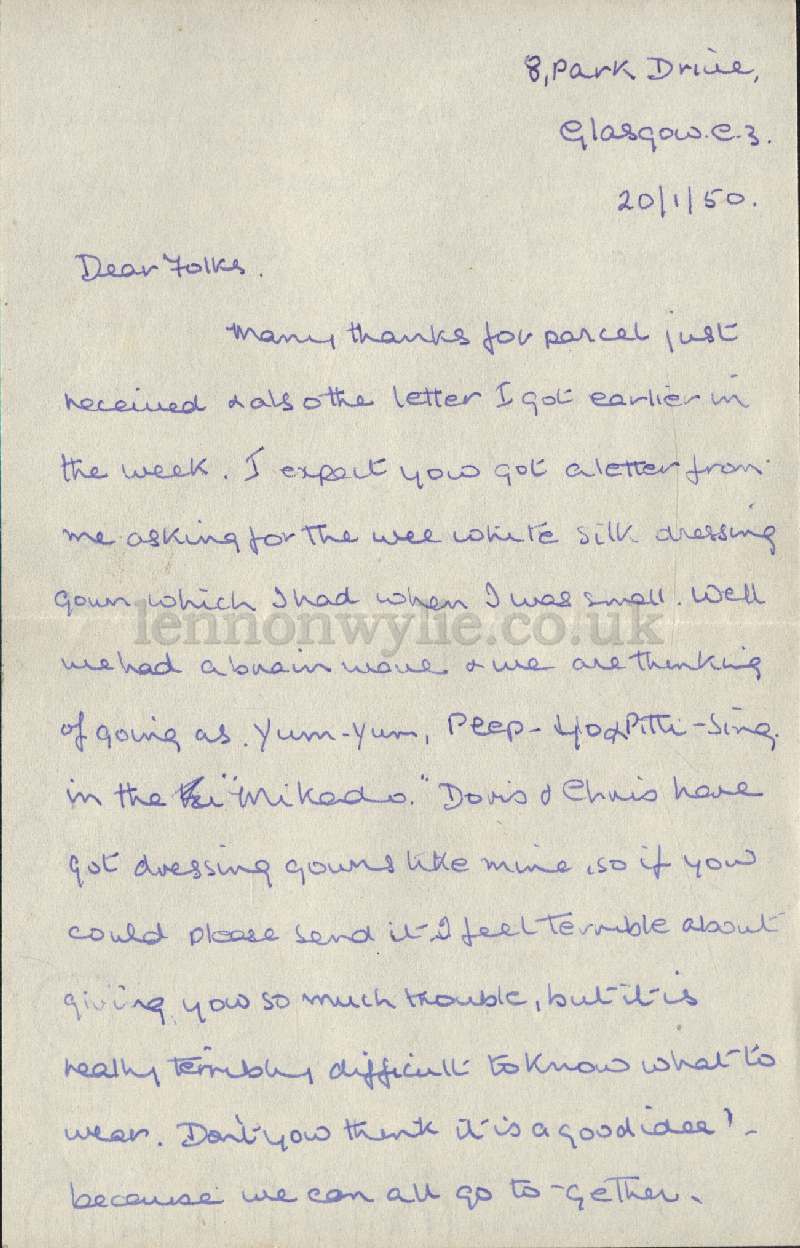 8, Park Drive,
Glasgow. C. 3.
20/1/50.
Dear Folks.
Many thanks for parcel just
received & also the letter I got earlier in
the week. I expect you got a letter from
me asking for the wee white silk dressing
gown which I had when I was small. Well
lennonwylie.co.uk
we had a brain wave & we are thinking
of going as Yum-Yum, Peep-Yo & Pitti-Sing.
in the "Mikado." Doris & Chris have
got dressing gowns like mine, so if you
could please send it I feel terrible about
giving you so much trouble, but it is
really terribly difficult to know what to
wear. Don't you think it is a good idea? -
because we can all go to-gether.